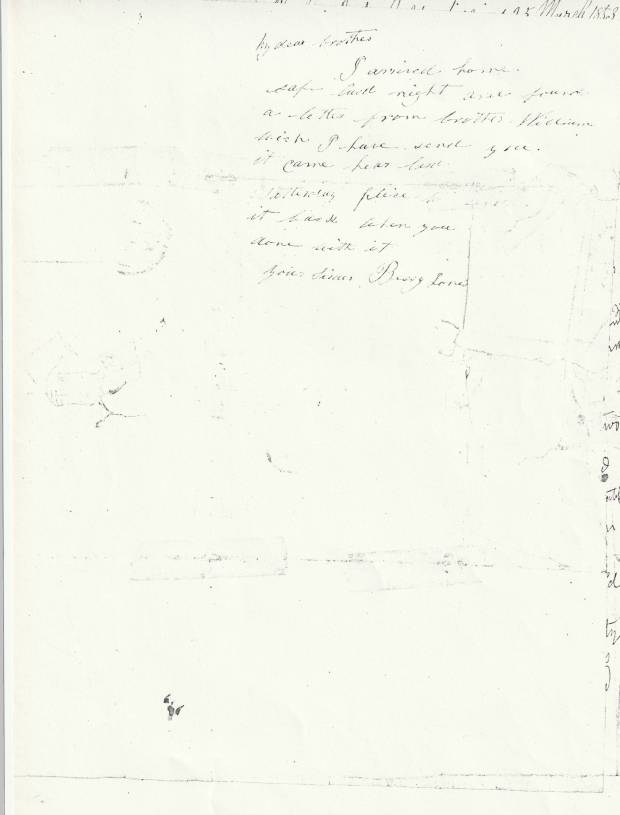 March 1858
My dear brother
I arrived home.
safe last night and found
a letter from brother William
wich I have send you.
it came hear last
plice
it back when you
done with it
your sister Jones